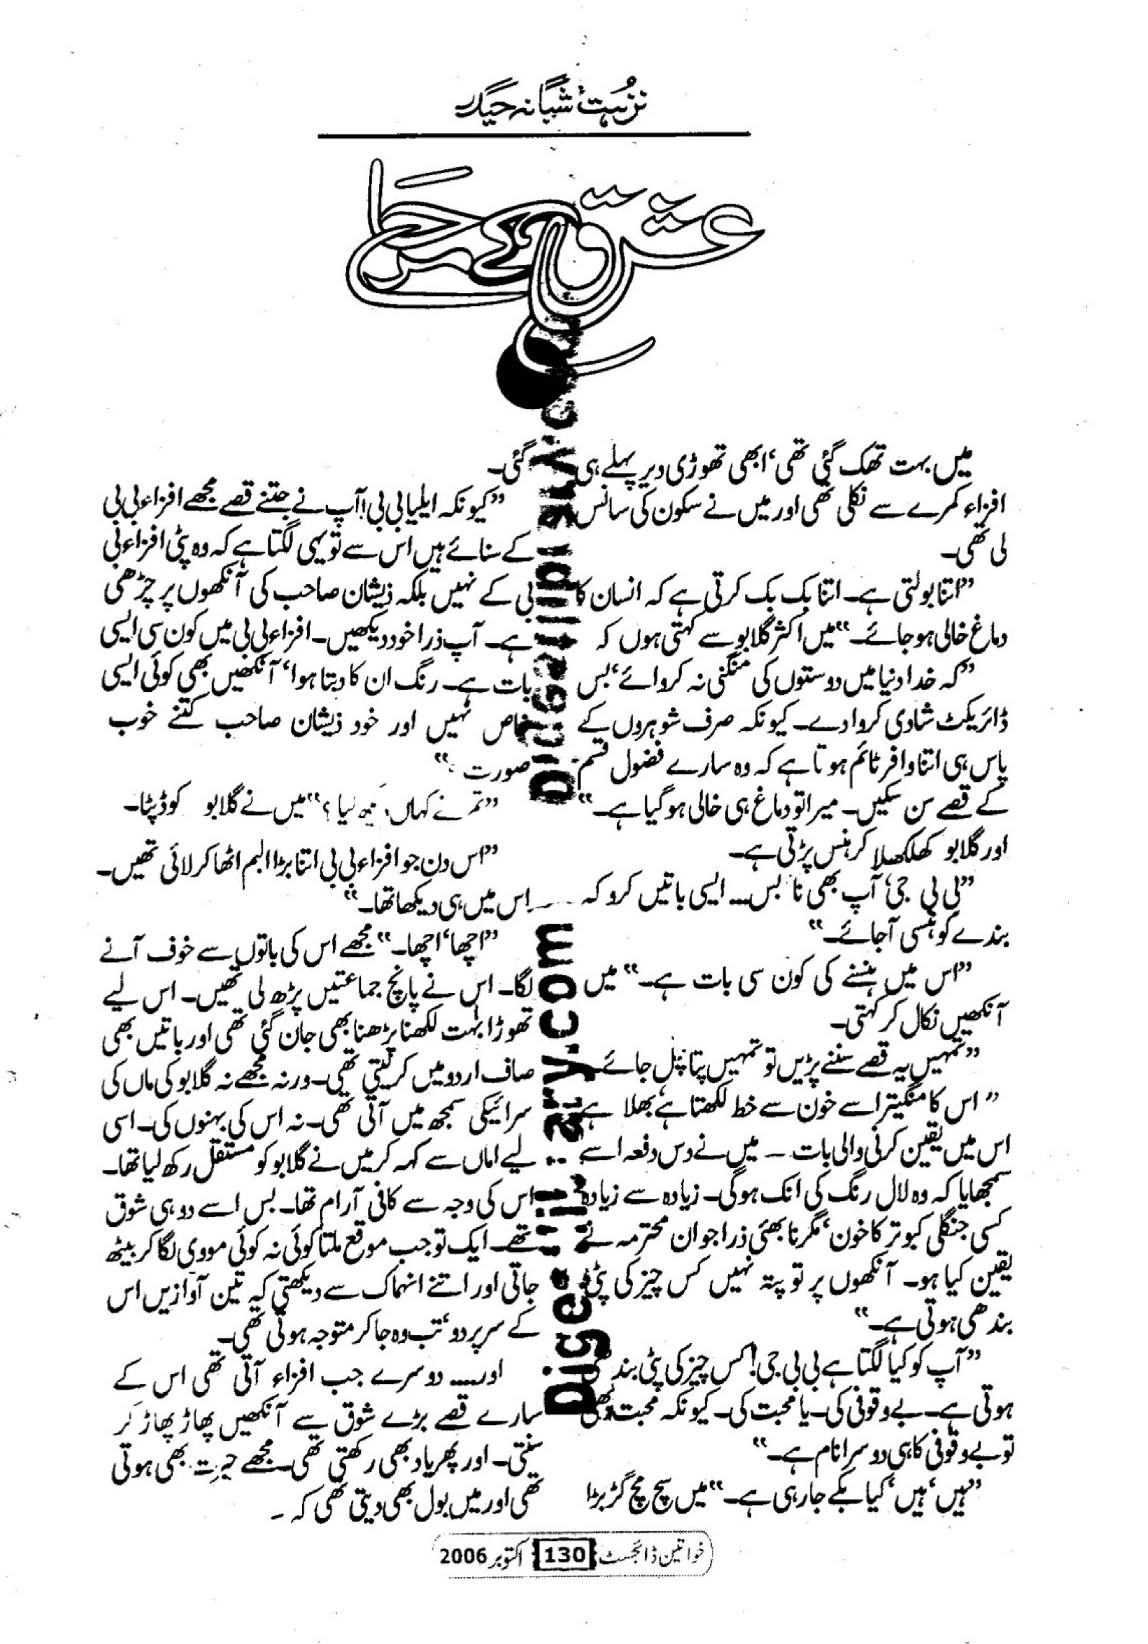 نزہت شبانہ حیدر
عشق کے
میں بہت تھک گئی تھی، ابھی تھوڑی دیر پہلے ہی
افزاء کمرے سے نکلی تھی اور میں نے سکون کی سانس
لی تھی۔
”اتنا بولتی ہے۔ اتنا بک بک کرتی ہے کہ انسان کا
دماغ خالی ہو جائے۔“ میں اکثر گلابو سے کہتی ہوں کہ
”کہ خدا دنیا میں دوستوں کی منگنی نہ کروائے، بس
ڈائریکٹ شادی کروا دے۔ کیونکہ صرف شوہروں کے
پاس ہی اتنا وافر ٹائم ہوتا ہے کہ وہ سارے فضول قسم
کے قصے سن سکیں۔ میرا تو دماغ ہی خالی ہو گیا ہے۔“
اور گلابو کھلکھلا کر ہنس پڑتی ہے۔
”بی بی جی، آپ بھی نا بس... ایسی باتیں کرو کہ
بندے کو ہنسی آجائے۔“
”اس میں ہنسنے کی کون سی بات ہے۔“ میں
آنکھیں نکال کر کہتی۔
”تمہیں یہ قصے سننے پڑیں تو تمہیں پتا چل جائے۔
” اس کا منگیتر اسے خون سے خط لکھتا ہے، بھلا ہے
اس میں یقین کرنی والی بات ۔ میں نے دس دفعہ اسے
سمجھایا کہ وہ لال رنگ کی انک ہوگی۔ زیادہ سے زیادہ
کسی جنگلی کبوتر کا خون، مگر نا بھئی ذرا جو ان محترمہ نے
یقین کیا ہو۔ آنکھوں پر تو پتہ نہیں کس چیز کی پٹی
بندھی ہوتی ہے۔“
”آپ کو کیا لگتا ہے بی بی جی! کس چیز کی پٹی بندھی
ہوتی ہے۔ بے وقوفی کی۔ یا محبت کی۔ کیونکہ محبت بھی
تو بے وقوفی کا ہی دوسرا نام ہے۔“
”ہیں، ہیں، کیا بکے جا رہی ہے۔“ میں سچ مچ گڑبڑا
گئی۔
”کیونکہ ایلیا بی بی! آپ نے جتنے قصے مجھے افزاء بی بی
کے سنائے ہیں اس سے تو یہی لگتا ہے کہ وہ پٹی افزاء بی
بی کے نہیں بلکہ ذیشان صاحب کی آنکھوں پر چڑھی
ہے۔ آپ ذرا خود دیکھیں۔ افزاء بی بی میں کون سی ایسی
بات ہے۔ رنگ ان کا دبتا ہوا، آنکھیں بھی کوئی ایسی
خاص نہیں اور خود ذیشان صاحب کتنے خوب
صورت ۔“
”تم نے کہاں دیکھ لیا؟“ میں نے گلابو کو ڈپٹا۔
”اس دن جو افزاء بی بی اتنا بڑا البم اٹھا کر لائی تھیں۔
اس میں ہی دیکھا تھا۔“
”اچھا، اچھا۔“ مجھے اس کی باتوں سے خوف آنے
لگا۔ اس نے پانچ جماعتیں پڑھ لی تھیں۔ اس لیے
تھوڑا بہت لکھنا پڑھنا بھی جان گئی تھی اور باتیں بھی
صاف اردو میں کر لیتی تھی۔ ورنہ مجھے نہ گلابو کی ماں کی
سرائیکی سمجھ میں آتی تھی۔ نہ اس کی بہنوں کی۔ اسی
لیے اماں سے کہہ کر میں نے گلابو کو مستقل رکھ لیا تھا۔
اس کی وجہ سے کافی آرام تھا۔ بس اسے دو ہی شوق
تھے۔ ایک تو جب موقع ملتا کوئی نہ کوئی مووی لگا کر بیٹھ
جاتی اور اتنے انہماک سے دیکھتی کہ تین آوازیں اس
کے سر پر دو، تب وہ جا کر متوجہ ہوتی تھی۔
اور.... دوسرے جب افزاء آتی تھی اس کے
سارے قصے بڑے شوق سے آنکھیں پھاڑ پھاڑ کر
سنتی۔ اور پھر یاد بھی رکھتی تھی۔ مجھے حیرت بھی ہوتی
تھی اور میں بول بھی دیتی تھی کہ۔
خواتین ڈائجسٹ 130 اکتوبر 2006